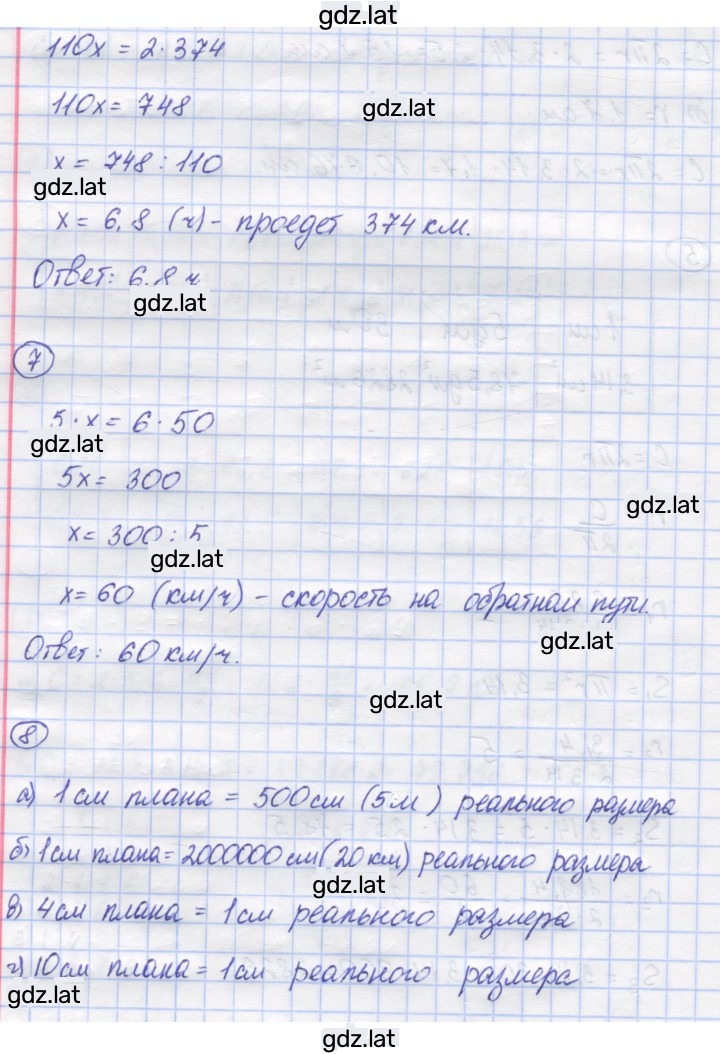 gdz.lat
110x = 2·374
110x = 748
gdz.lat
x = 748 : 110
gdz.lat
x = 6,8 (ч) - проедет 374 км.
Ответ: 6,8 ч.
gdz.lat
7
5·x = 6·50
gdz.lat
5x = 300
gdz.lat
x = 300 : 5
gdz.lat
x = 60 (км/ч) - скорость на обратном пути.
gdz.lat
Ответ: 60 км/ч.
gdz.lat
8
а) 1 см плана = 500 см (5 м) реального размера
б) 1 см плана = 2000000 см (20 км) реального размера
gdz.lat
в) 4 см плана = 1 см реального размера
г) 10 см плана = 1 см реального размера
gdz.lat
gdz.lat